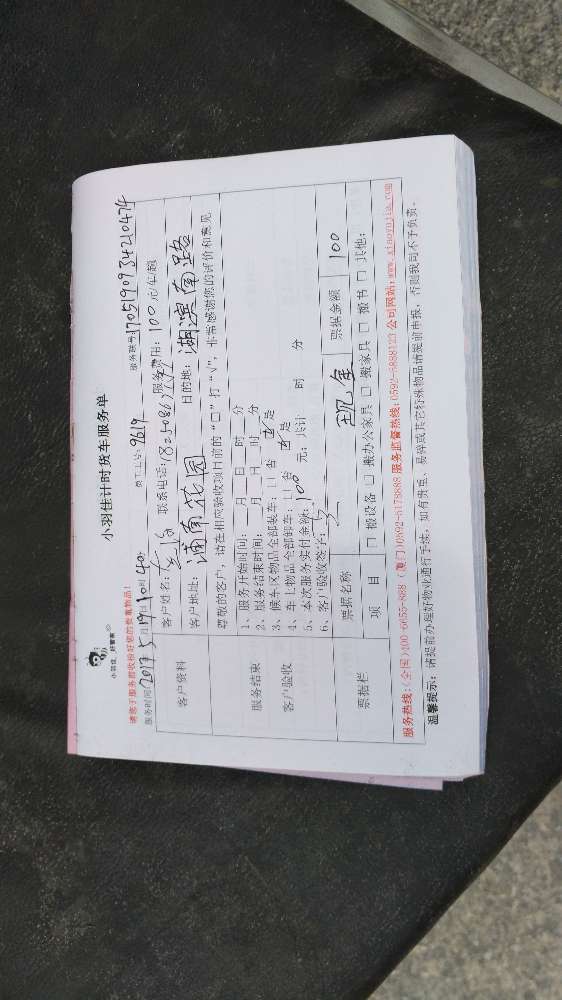 小羽佳 好管家
小羽佳计时货车服务单
请您于服务前收好您的贵重物品！
服务时间：2017年5月19日10时40分 员工工号：9619 服务账号：1705190934210474
客户资料
客户姓名： 联系电话： 服务费用：100元/车/趟
客户地址：浦南花园 目的地：湖滨南路
服务结束
客户验收
尊敬的客户，请在相应验收项目前的“□”打“√”，非常感谢您的评价和意见
1、服务开始时间：__月__日__时__分
2、服务结束时间：__月__日__时__分
3、候车区物品全部装车：□ 否 ☑ 是
4、车上物品全部卸车：□ 否 ☑ 是
5、本次服务实付金额：100元；共计 时 分
6、客户验收签字：
票据栏
票据名称 现金 票据金额 100
项 目 □ 搬设备 □ 搬办公家具 □ 搬家具 □ 搬书 □ 其他：
服务热线：（全国）400-6655-888（厦门）0592-6178888 服务监督热线：0592-6888123 公司网站：www.xiaoyujia.com
温馨提示：请提前办理好物业通行手续，如有贵重、易碎或其它特殊物品请提前申报，否则我司不予负责。